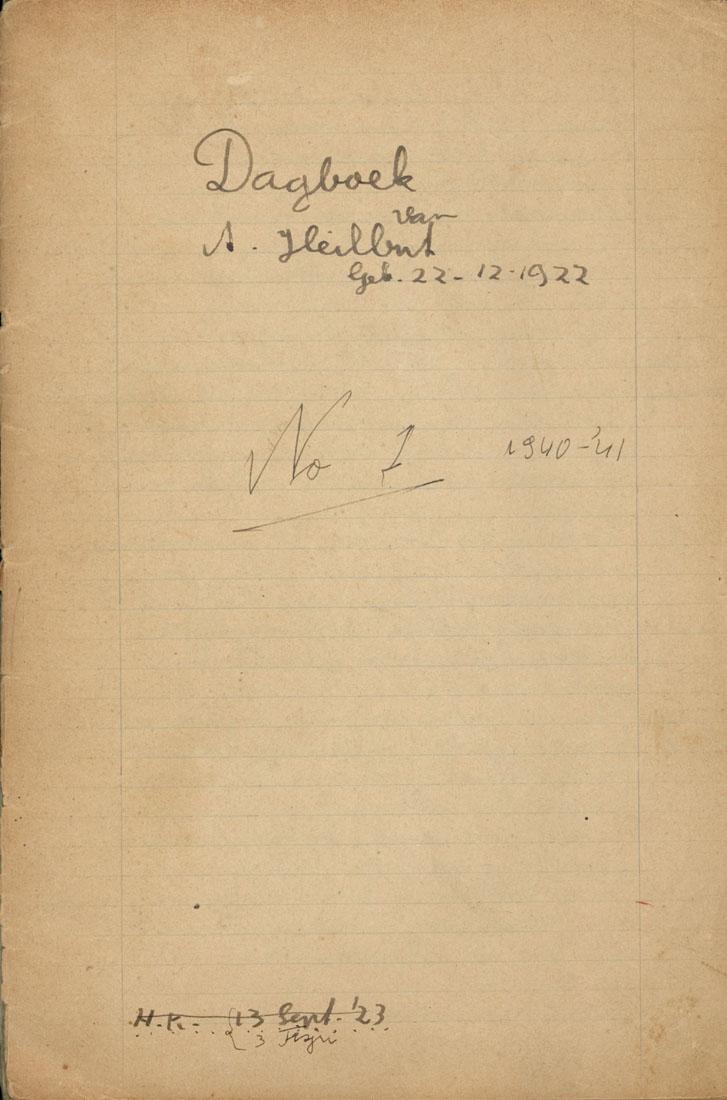 Dagboek
van
A. Heilbut
Geb. 22-12-1922
No 1
1940-'41
H.K. - 13 Sept. '23
3 Tisjri